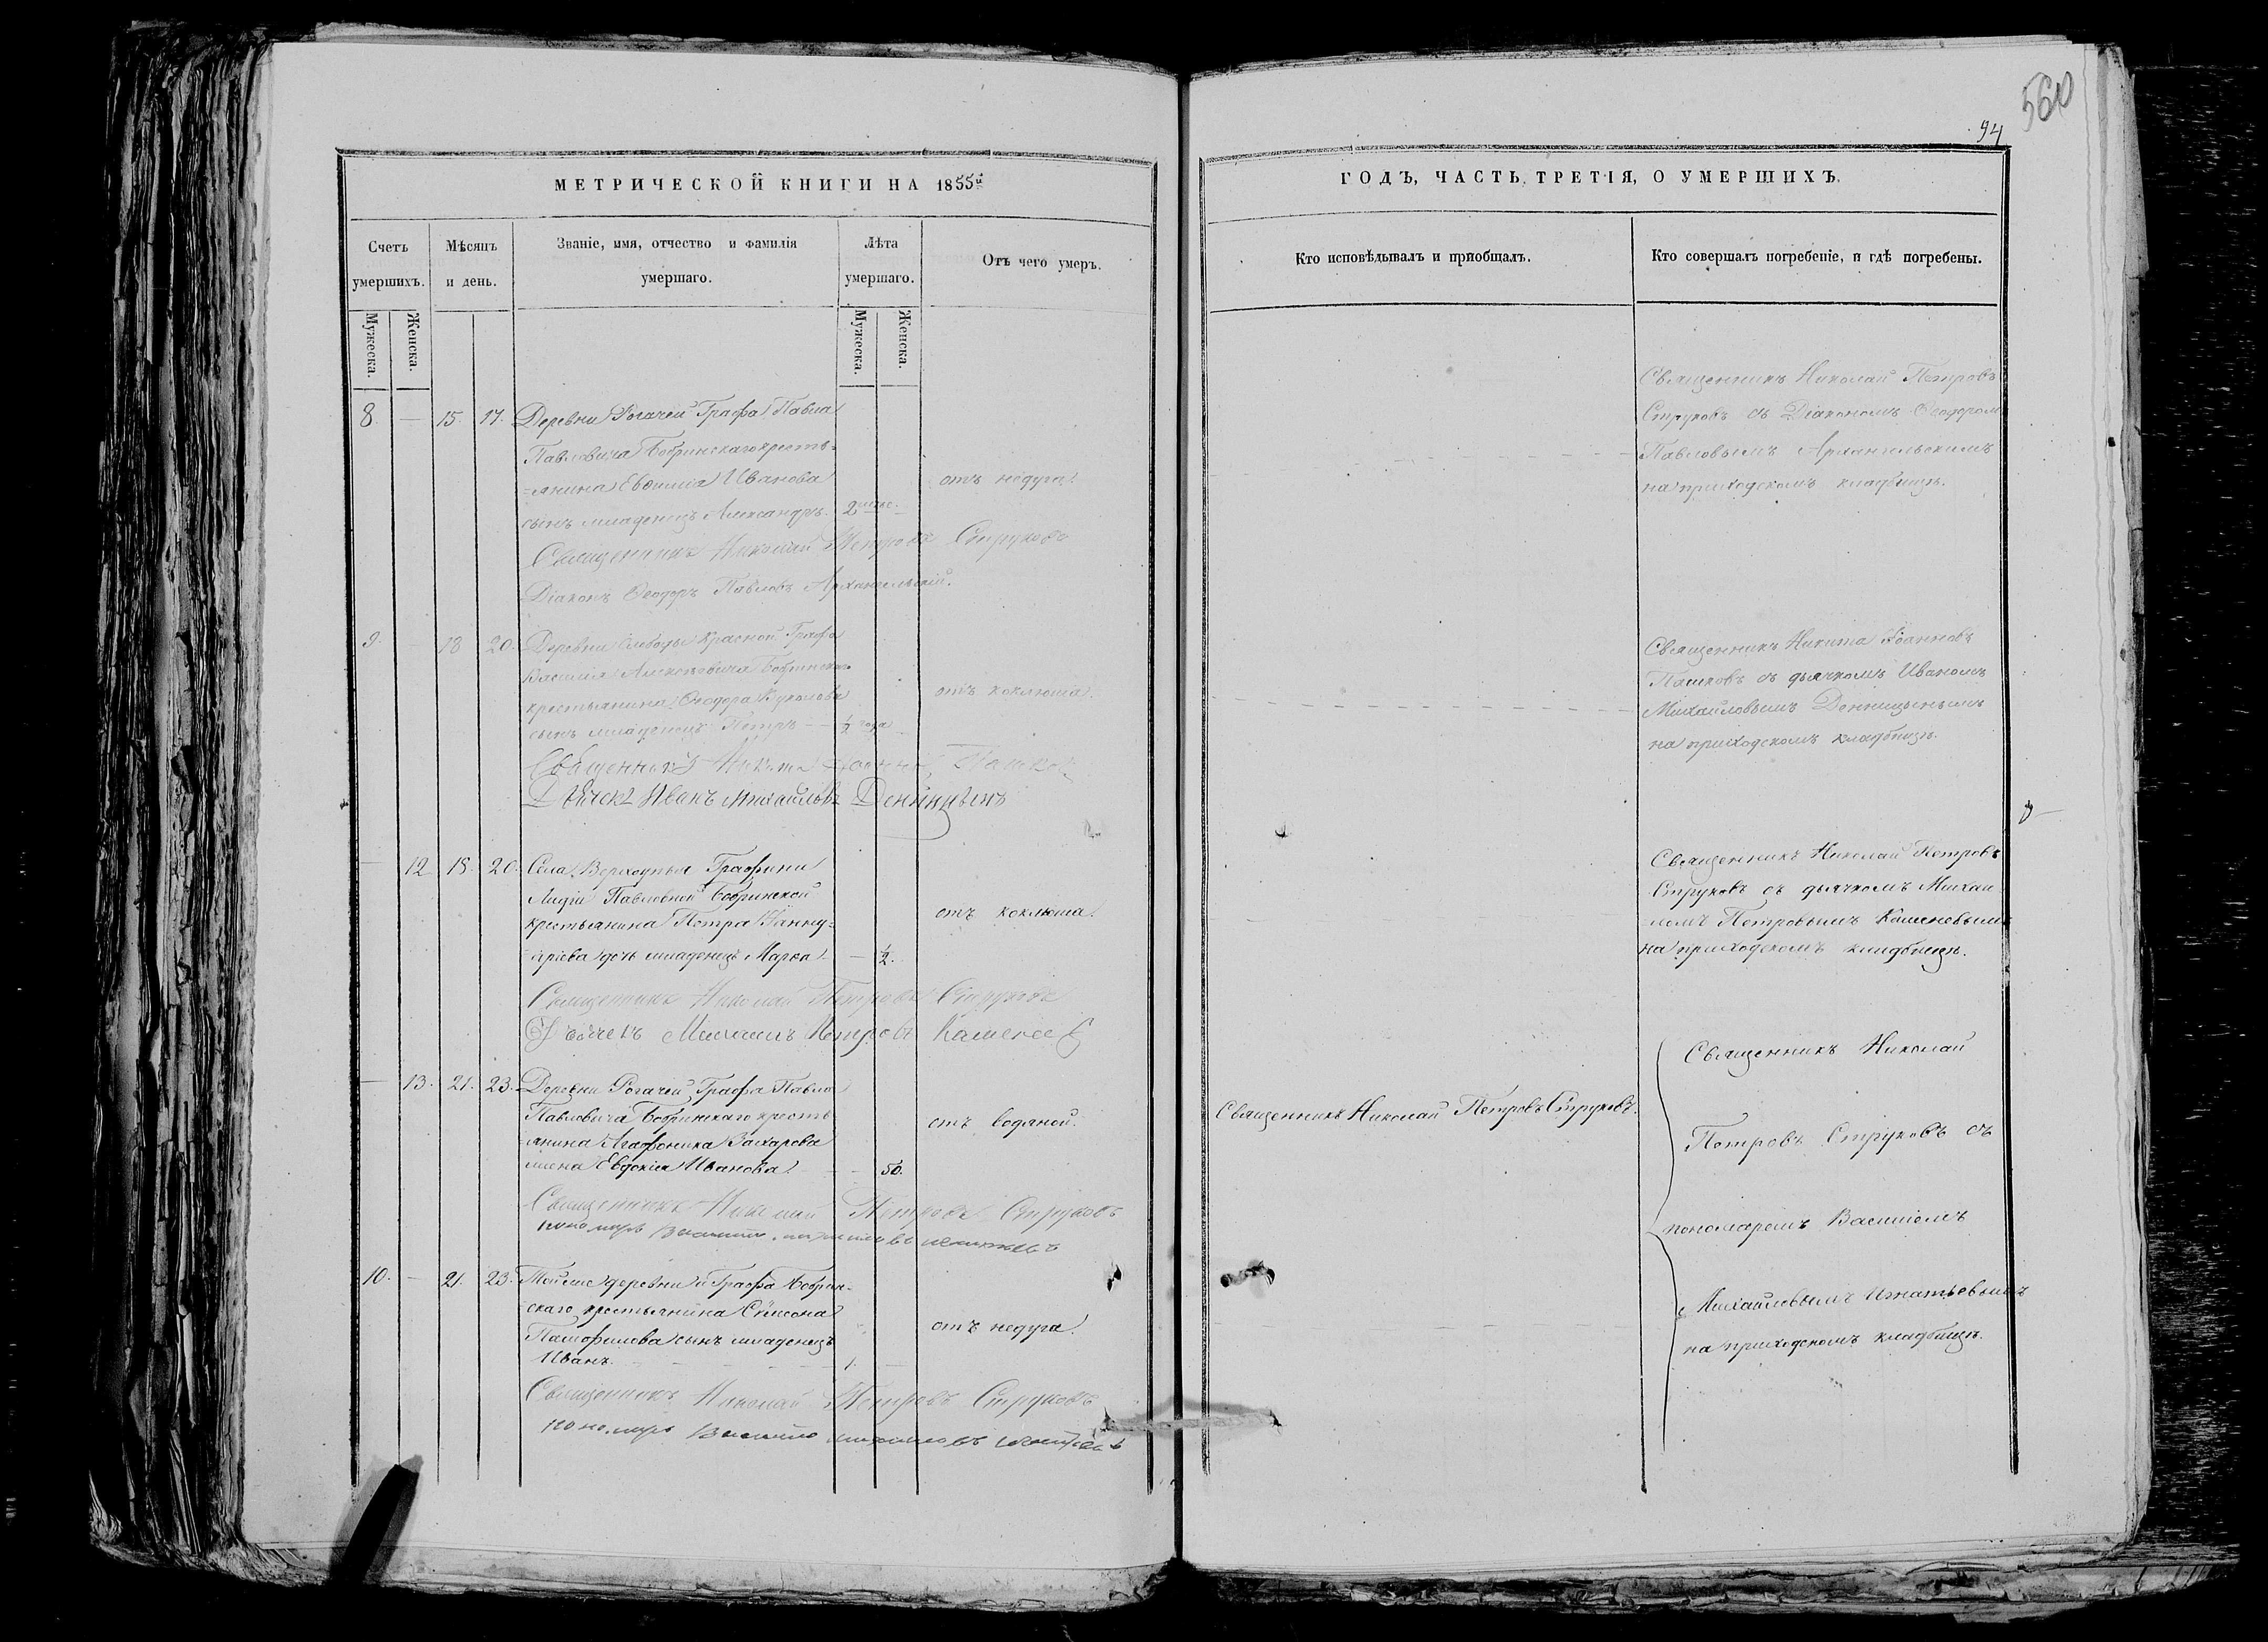 560
94
МЕТРИЧЕСКОЙ КНИГИ НА 1855й
ГОДЪ, ЧАСТЬ ТРЕТІЯ, О УМЕРШИХЪ.
Счетъ умершихъ.
Мѣсяцъ и день.
Званіе, имя, отчество и фамилія умершаго.
Лѣта умершаго.
Отъ чего умеръ.
Кто исповѣдывалъ и пріобщалъ.
Кто совершалъ погребеніе, и гдѣ погребены.
Мужеска.
Женска.
Мужеска.
Женска.
8. — 15. 17. Деревни Рогачей Графа Павла
Павловича Бобринскаго кресть=
=янина Евѳимія Иванова
сынъ младенецъ Александръ. 2 мѣс.
отъ недуга.
Священникъ Николай Петровъ
Струковъ съ Діакономъ Ѳеодоромъ
Павловымъ Архангельскимъ
на приходскомъ кладбищѣ.
Священникъ Николай Петровъ Струковъ
Діаконъ Ѳеодоръ Павловъ Архангельскій.
9. — 18 20. Деревни Слободы Красной Графа
Василія Алексѣевича Бобринскаго
крестьянина Ѳеодора
сынъ младенецъ Петръ — 1/2 года
отъ коклюша.
Священникъ Никита Іоанновъ
Пашковъ съ дьячкомъ Иваномъ
Михайловымъ Денницынымъ
на приходскомъ кладбищѣ.
Священникъ Никита Іоанновъ Пашковъ
Дьячекъ Иванъ Михайловъ Денницынъ
— 12 18. 20. Села Верхоупья Графини
Лидіи Павловной Бобринской
крестьянина Петра
дочь младенецъ Марья — 1/2.
отъ коклюша.
Священникъ Николай Петровъ
Струковъ съ дьячкомъ Михаи
ломъ Петровымъ Каменевымъ
на приходскомъ кладбищѣ.
Священникъ Николай Петровъ Струковъ
Дьячекъ Михаилъ Петровъ Каменевъ
— 13. 21. 23. Деревни Рогачей Графа Павла
Павловича Бобринскаго кресть
=янина Агафоника Захарова
жена Евдокія Иванова. — 50.
отъ водяной.
Священникъ Николай Петровъ Струковъ.
Священникъ Николай
Петровъ Струковъ съ
пономаремъ Василіемъ
Михайловымъ Игнатьевымъ
на приходскомъ кладбищѣ.
Священникъ Николай Петровъ Струковъ
пономарь Василий Михайловъ Игнатьевъ
10. — 21. 23. Той же деревни и Графа Бобрин-
скаго крестьянина Сѵмеона
Памфилова сынъ младенецъ
Иванъ. — 1. —
отъ недуга.
Священникъ Николай Петровъ Струковъ
пономарь Василий Михайловъ Игнатьевъ